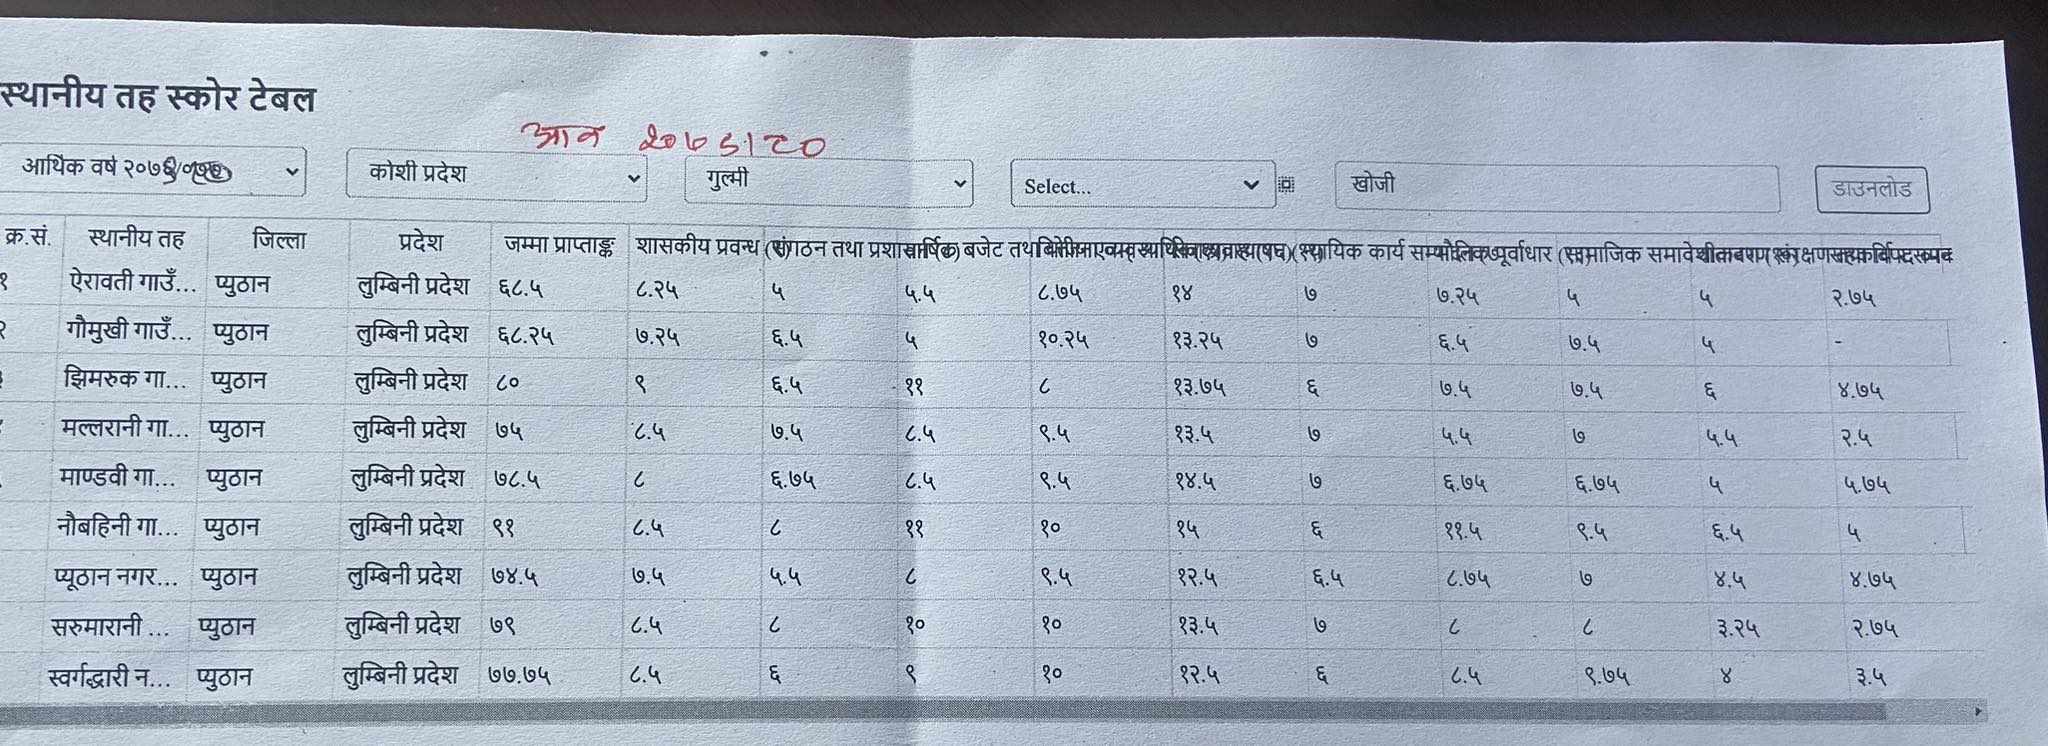 स्थानीय तह स्कोर टेबल
आव २०७९।८०
आर्थिक वर्ष कोशी प्रदेश गुल्मी Select... खोजी डाउनलोड
क्र.सं. स्थानीय तह जिल्ला प्रदेश जम्मा प्राप्ताङ्क शासकीय प्रवन्ध संगठन तथा बजेट तथा न्यायिक कार्य पूर्वाधार सामाजिक
१ ऐरावती गाउँ... प्युठान लुम्बिनी प्रदेश ६८.५ ८.२५ ५ ५.५ ८.७५ १४ ७ ७.२५ ५ ५ २.७५
२ गौमुखी गाउँ... प्युठान लुम्बिनी प्रदेश ६८.२५ ७.२५ ६.५ ५ १०.२५ १३.२५ ७ ६.५ ७.५ ५ -
झिमरुक गा... प्युठान लुम्बिनी प्रदेश ८० ९ ६.५ ११ ८ १३.७५ ६ ७.५ ७.५ ६ ४.७५
मल्लरानी गा... प्युठान लुम्बिनी प्रदेश ७५ ८.५ ७.५ ८.५ ९.५ १३.५ ७ ५.५ ७ ५.५ २.५
माण्डवी गा... प्युठान लुम्बिनी प्रदेश ७८.५ ८ ६.७५ ८.५ ९.५ १४.५ ७ ६.७५ ६.७५ ५ ५.७५
नौबहिनी गा... प्युठान लुम्बिनी प्रदेश ९१ ८.५ ८ ११ १० १५ ६ ११.५ ९.५ ६.५ ५
प्यूठान नगर... प्युठान लुम्बिनी प्रदेश ७४.५ ७.५ ५.५ ८ ९.५ १२.५ ६.५ ८.७५ ७ ४.५ ४.७५
सरुमारानी ... प्युठान लुम्बिनी प्रदेश ७९ ८.५ ८ १० १० १३.५ ७ ८ ८ ३.२५ २.७५
स्वर्गद्धारी न... प्युठान लुम्बिनी प्रदेश ७७.७५ ८.५ ६ ९ १० १२.५ ६ ८.५ ९.७५ ४ ३.५